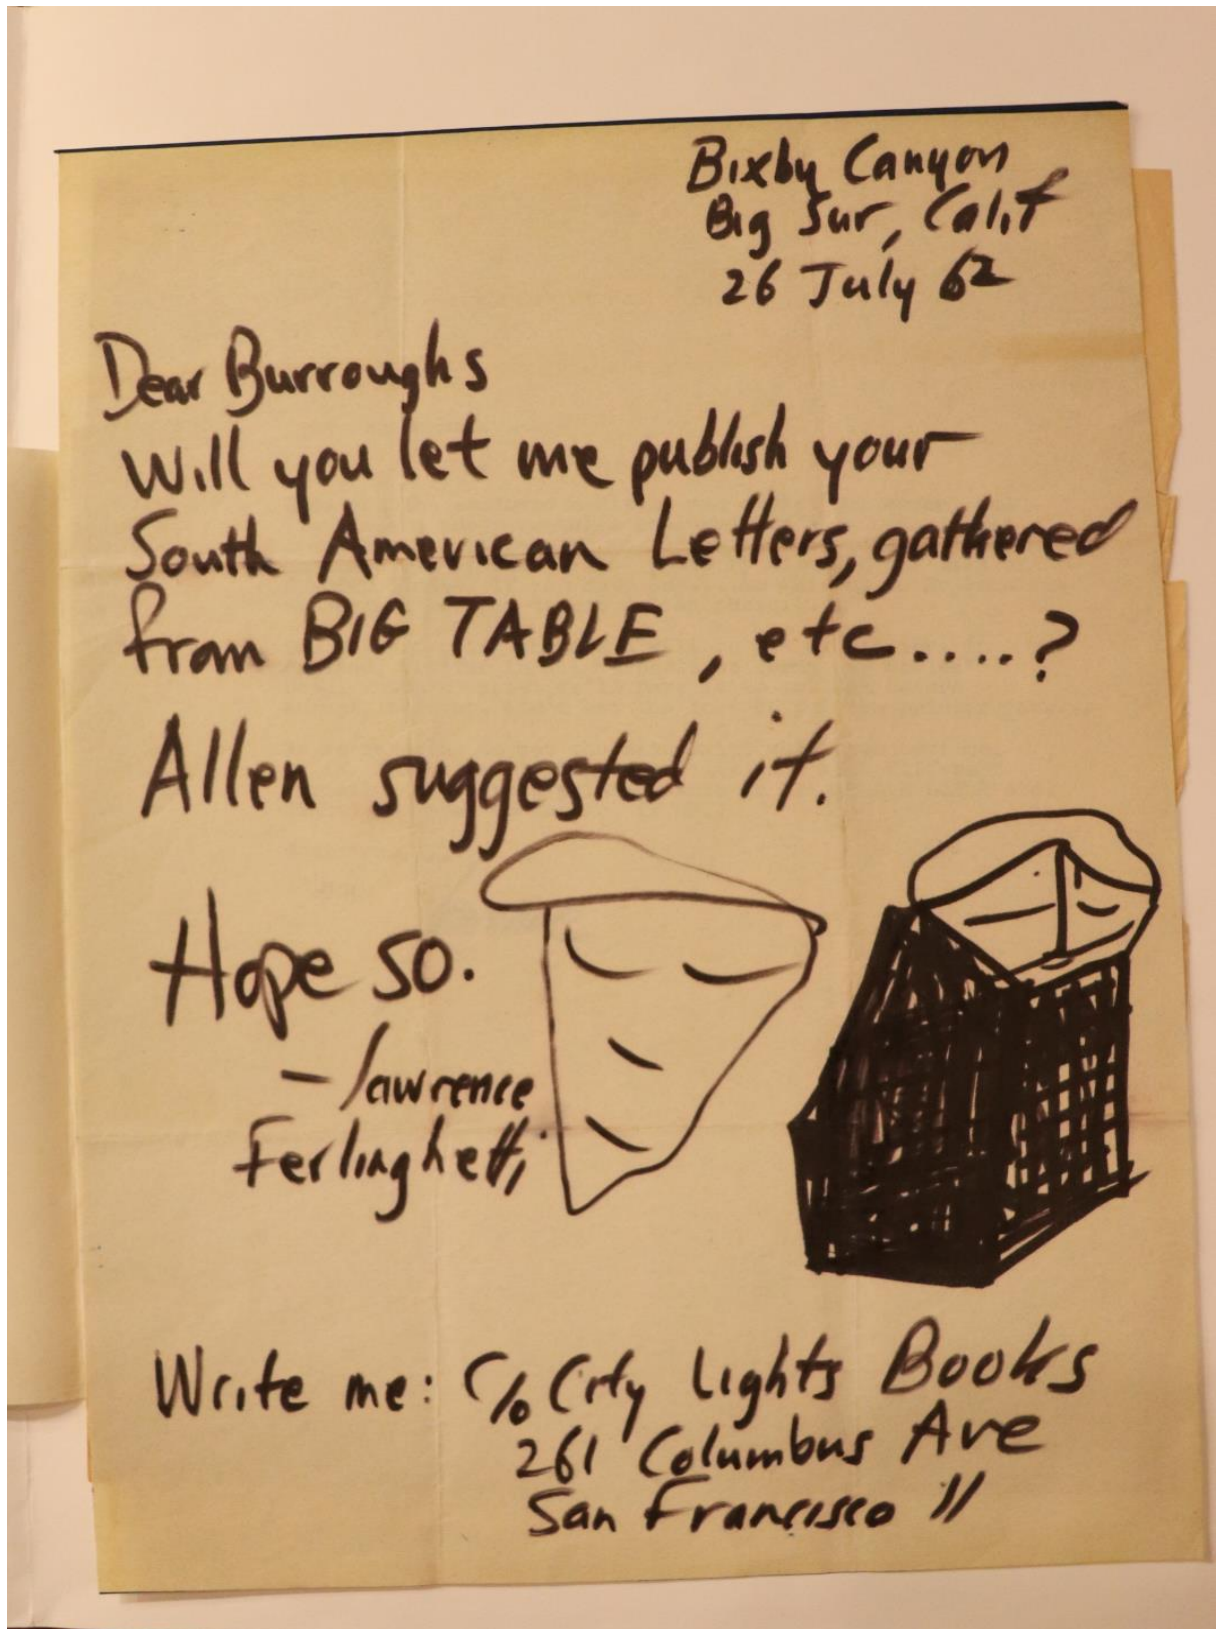 Bixby Canyon
Big Sur, Calif
26 July 62
Dear Burroughs
Will you let me publish your
South American Letters, gathered
from BIG TABLE, etc.....?
Allen suggested it.
Hope so.
— lawrence
Ferlinghetti
Write me: c/o City Lights Books
261 Columbus Ave
San Francisco 11